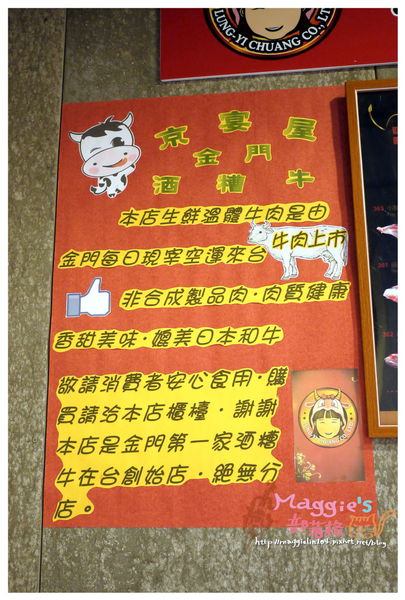 LUNG-YI CHUANG CO., LT
京宴屋
金門
酒糟牛
本店生鮮溫體牛肉是由
金門每日現宰空運來台
牛肉上市
非合成製品肉，肉質健康
香甜美味，媲美日本和牛
敬請消費者安心食用，購
買請洽本店櫃檯，謝謝
本店是金門第一家酒糟
牛在台創始店，絕無分
店。
303
305
Maggie's
http://maggielin204.pixnet.net/blog